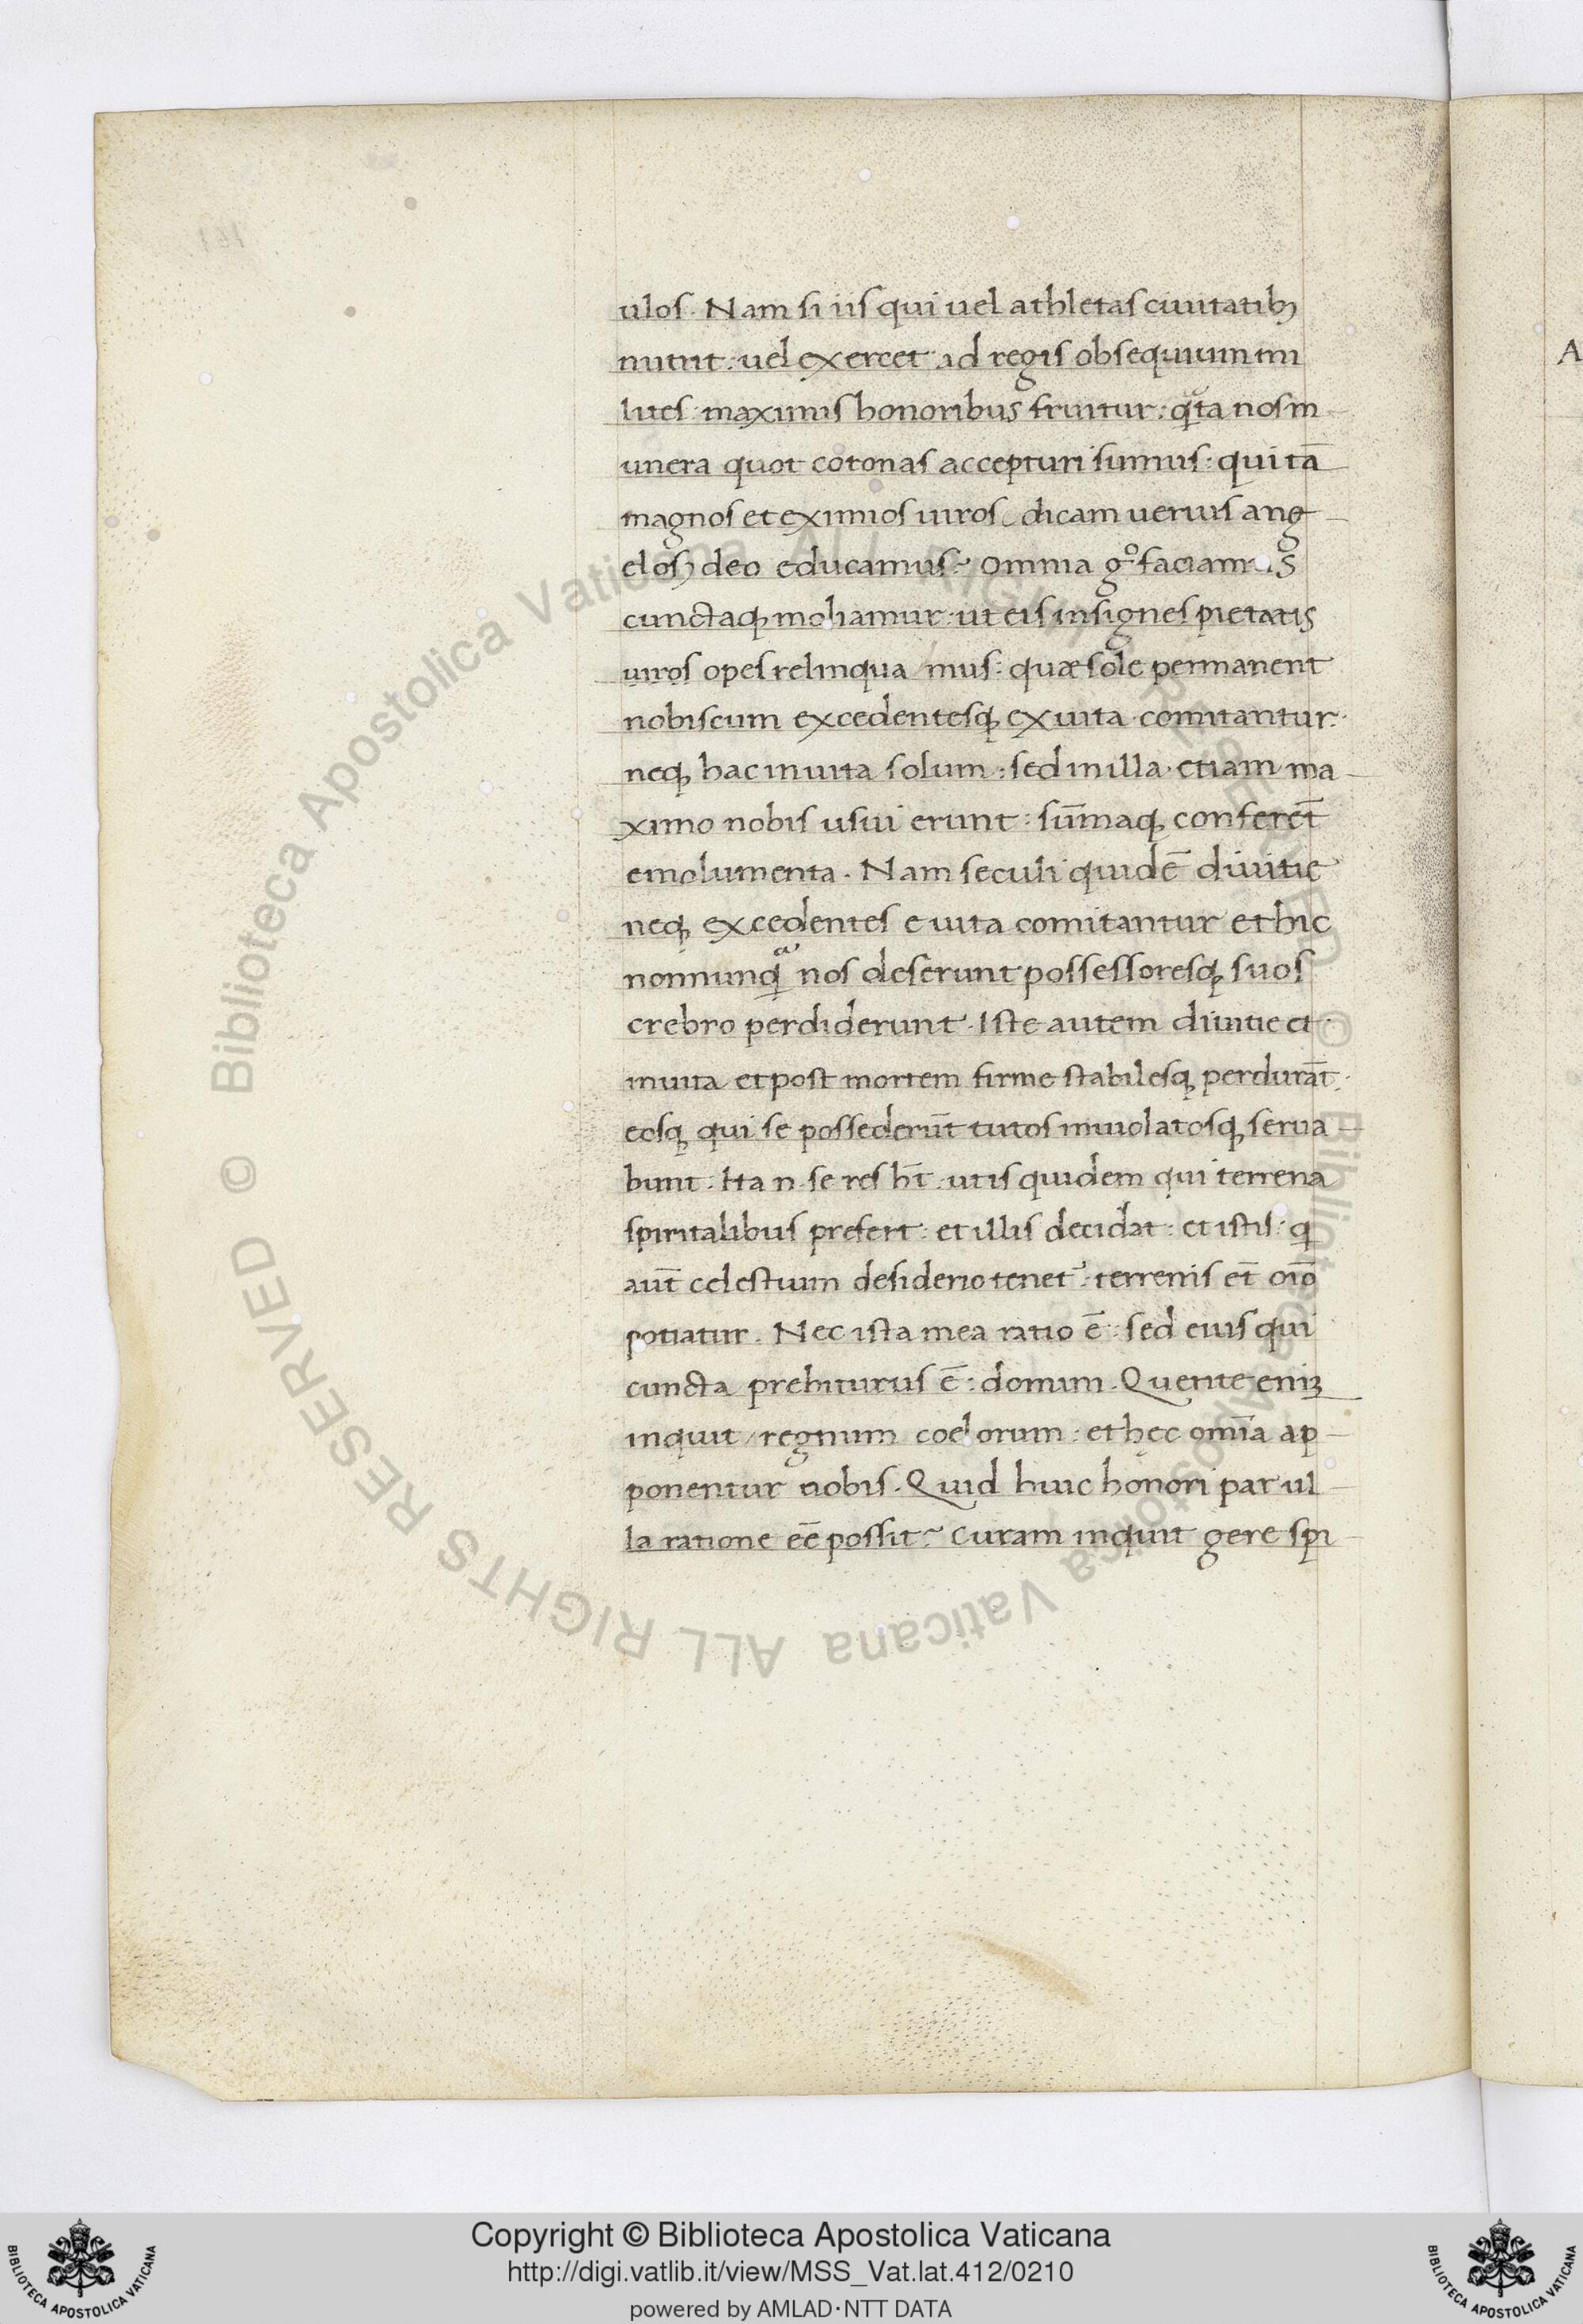 ulos. Nam si iis qui uel athletas ciuitatibꝫ
nutrit: uel exercet ad regis obsequium mi
lites: maximis honoribus fruitur: qͣta nos m
unera quot coronas accepturi sumus: qui tā
magnos et eximios uiros, dicam uerius ang
elos, deo educamus? omnia gͦ faciamus
cunctaqꝫ moliamur: ut eis insignes pietatis
uiros opes relinqua/mus: quæ sole permanent
nobiscum excedentesqꝫ ex uita comitantur.
neqꝫ hac in uita solum: sed in illa etiam ma
ximo nobis usui erunt: sūmaqꝫ conferēt
emolumenta. Nam seculi quidē diuitie
neqꝫ excedentes e uita comitantur et hic
nonnunqͣ nos deserunt possessoresqꝫ suos
crebro perdiderunt. Iste autem diuitie et
in uita et post mortem firme stabilesqꝫ perdurāt.
eosqꝫ qui se possederūt tutos inuiolatosqꝫ serua
bunt. Ita n. se res ht̄: ut is quidem qui terrena
spiritalibus prefert: et illis decidat: et istis: q
aut̄ celestium desiderio tenetᷣ: terrenis et̄ oīo
potiatur. Nec ista mea ratio ē: sed eius qui
cuncta prebiturus ē: domini. Querite eniꝫ
inquit / regnum coelorum: et hęc omīa ap
ponentur uobis. Quid huic honori par ul
la ratione eē possit? Curam inquit gere spi
Copyright © Biblioteca Apostolica Vaticana
http://digi.vatlib.it/view/MSS_Vat.lat.412/0210
powered by AMLAD·NTT DATA
Biblioteca Apostolica Vaticana ALL RIGHTS RESERVED ©
Biblioteca Apostolica Vaticana ALL RIGHTS RESERVED ©
BIBLIOTECA APOSTOLICA VATICANA
BIBLIOTECA APOSTOLICA VATICANA
A
161